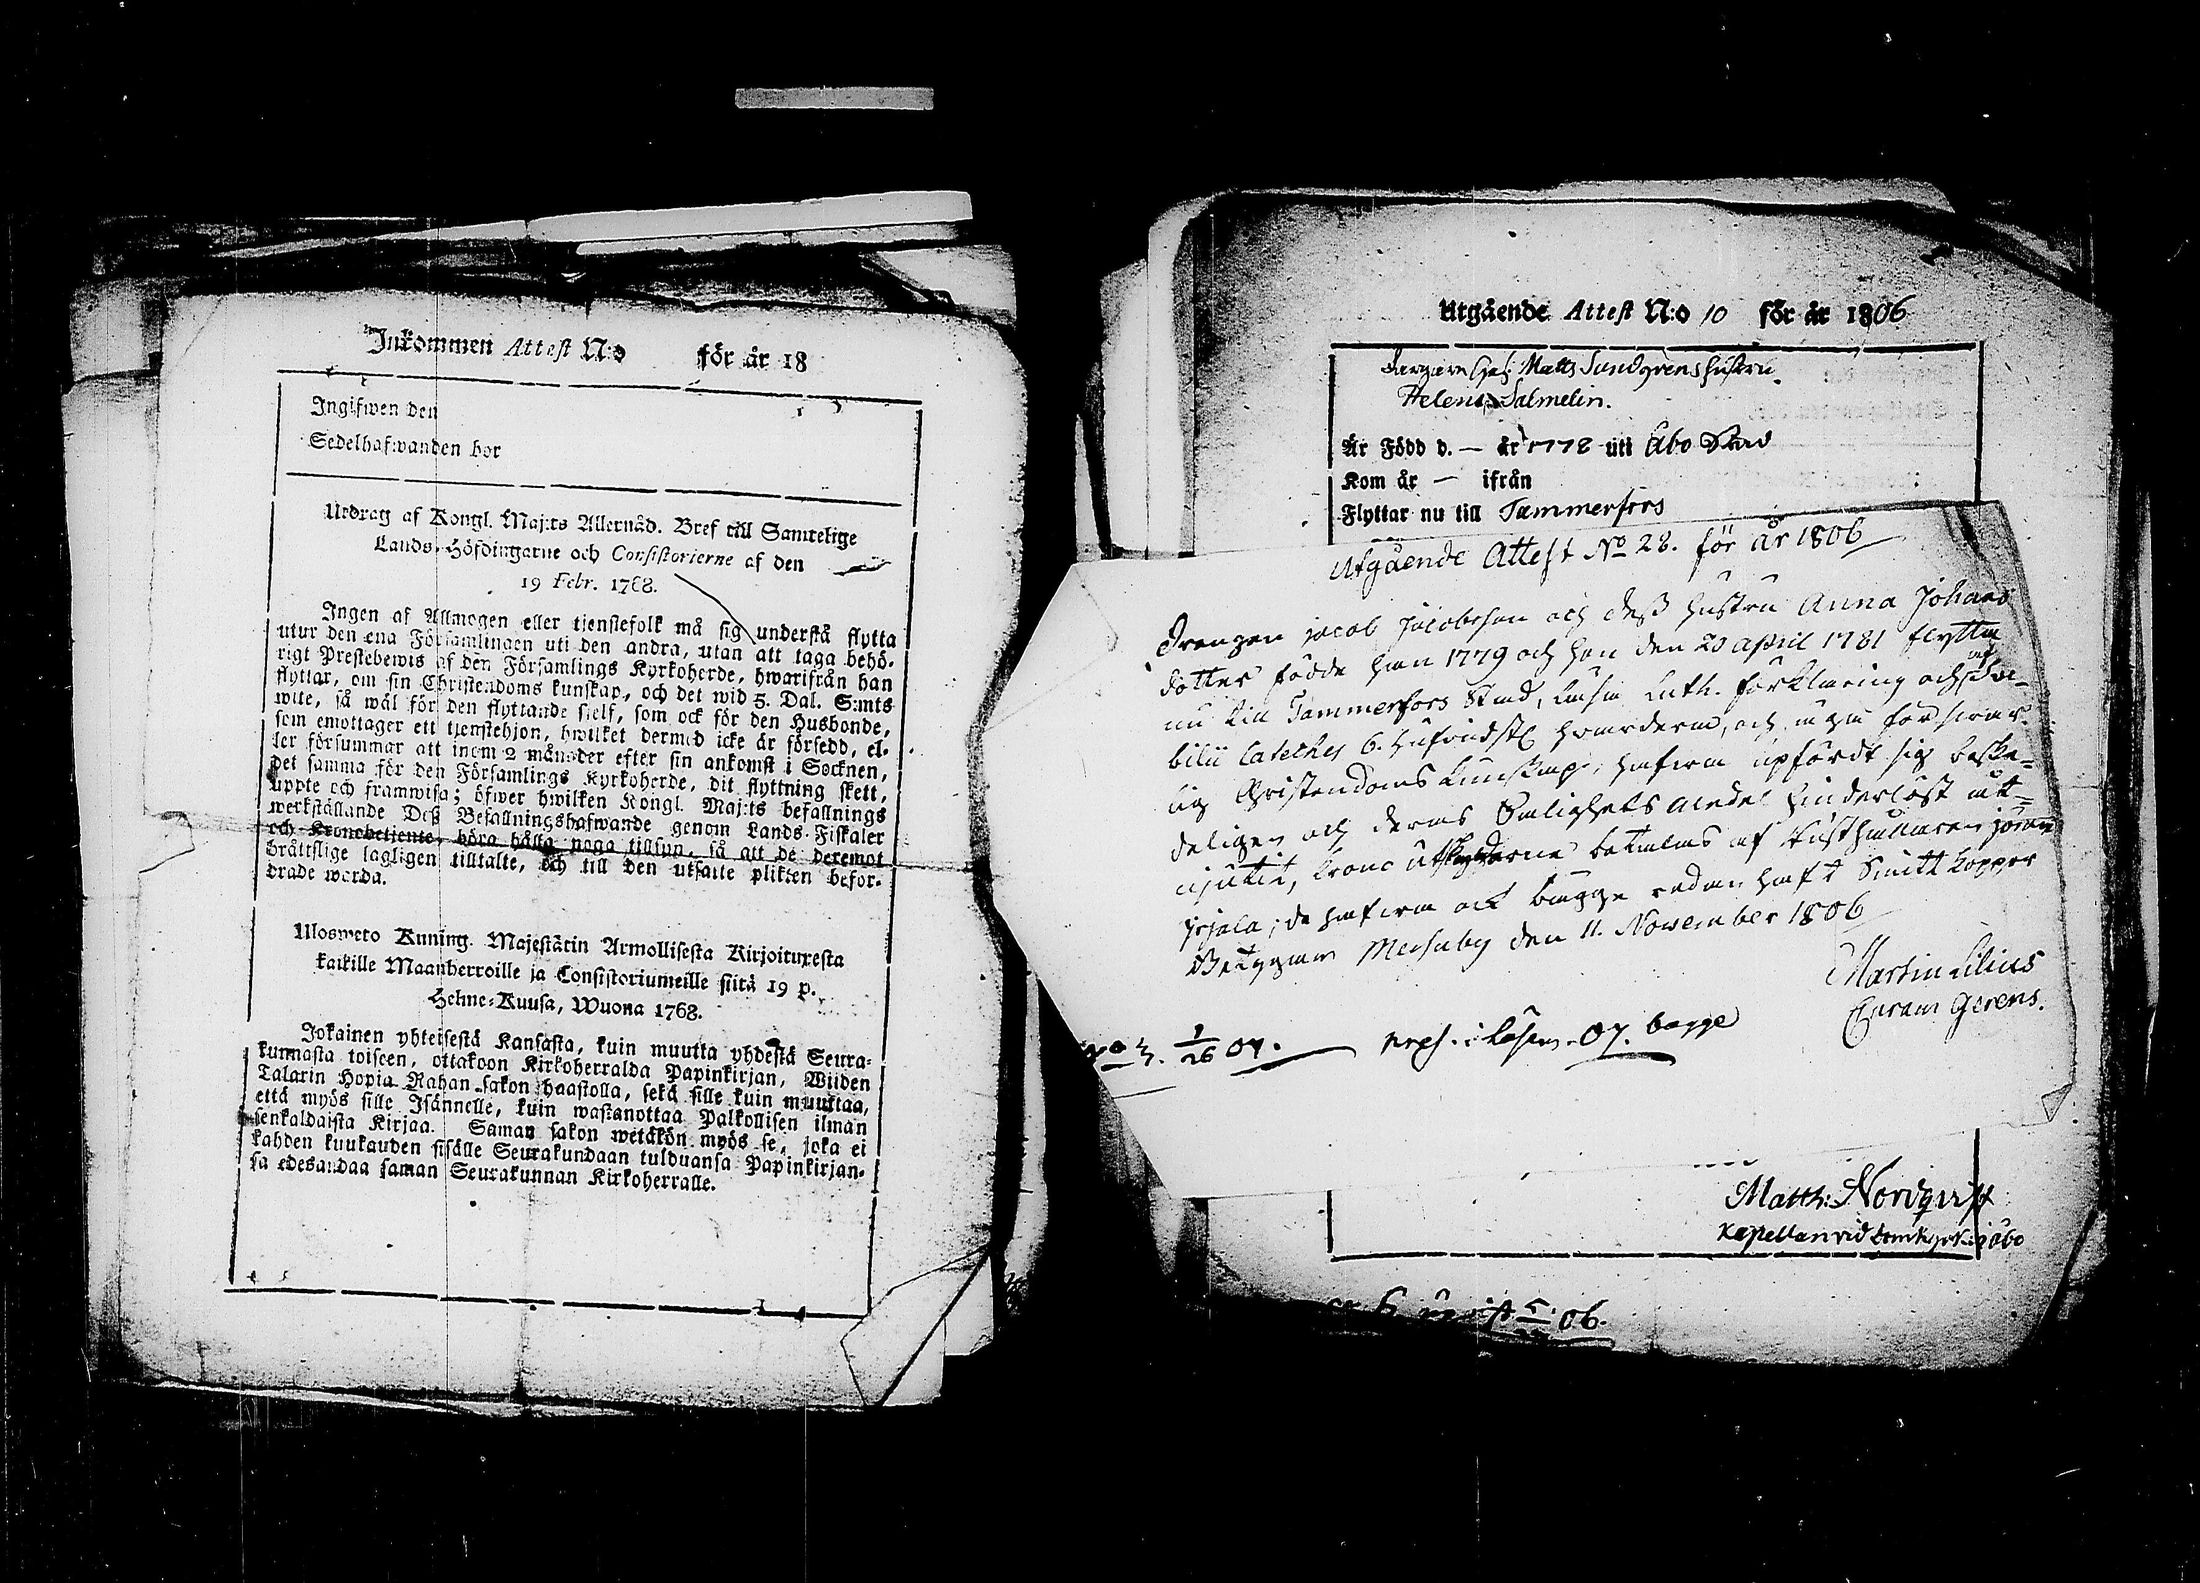 Inkommen Attest N:o för år 18
Ingifwen den
Sedelhafwanden bor
Utdrag af Kongl. Maj:ts Allernåd. Bref till Samtelige
Lands-Höfdingarne och Consistorierne af den
19 Febr. 1768.
Ingen af Allmogen eller tjenstefolk må sig understå flytta
utur den ena Församlingen uti den andra, utan att taga behö-
rigt Prestebewis af den Församlings Kyrkoherde, hwarifrån han
flyttar, om sin Christendoms kunskap, och det wid 5. Dal. S:mts
wite, så wäl för den flyttande sjelf, som ock för den Husbonde,
som emottager ett tjenstehjon, hwilket dermed icke är försedd, el-
ler försummar att inom 2 månader efter sin ankomst i Socknen,
det samma för den Församlings Kyrkoherde, dit flyttning skett,
uppte och framwisa; öfwer hwilken Kongl. Maj:ts befallnings
werkställande Deß Befallningshafwande genom Lands-Fiskaler
och Kronobetjente, böra hålla noga tillsyn, så att de deremot
brättslige lagligen tilltalte, och till den utsatte plikten befor-
drade warda.
Ulosweto Kuning. Majestätin Armollisesta Kirjoituxesta
kaikille Maanherroille ja Consistoriumeille siitä 19 p.
Helme-Kuusa, Wuona 1768.
Jokainen yhteisestä Kansasta, kuin muutta yhdestä Seura-
kunnasta toiseen, ottakoon Kirkoherralda Papinkirjan, Wiiden
Talarin Hopia Rahan sakon haastolla, sekä sille kuin muuttaa,
että myös sille Isännelle, kuin wastanottaa Palkollisen ilman
senkaldaista Kirjaa. Saman sakon wetäkön myös se, joka ei
kahden kuukauden sisälle Seurakundaan tulduansa Papinkirjan-
sa edesandaa saman Seurakunnan Kirkoherralle.
Utgående Attest N:o 10 för år 1806
Matts Sundgrens hustru
Helena Salmelin.
Är Född d. — år 1778 uti Åbo Stad
Kom år — ifrån
Flyttar nu till Tammerfors
Utgående Attest No 28. för år 1806
Drengen Jacob Jacobsson och deß hustru Anna Johans
dotter födde han 1779 och hon den 20 April 1781 flytta
nu till Tammerfors Stad, läsa Luth. förklaring och Sve-
bilii Cateches 6. hufvudst. hwardera, och äga förswar-
lig Christendoms kunskap, hafwa upfördt sig beske-
deligen och deras Salighets Medel hinderlöst att-
njutit, Krono Utskylderne betalas af Rusthållaren Johan
Jrjala; de hafwa ock bägge redan haft Smitt koppor
Betygar Messuby den 11. November 1806
Martin Lilius
Curam Gerens.
1/26 07. 07. bagge
Matth: Nordqvist
Kapellan vid Domkyrk. i Åbo
06.